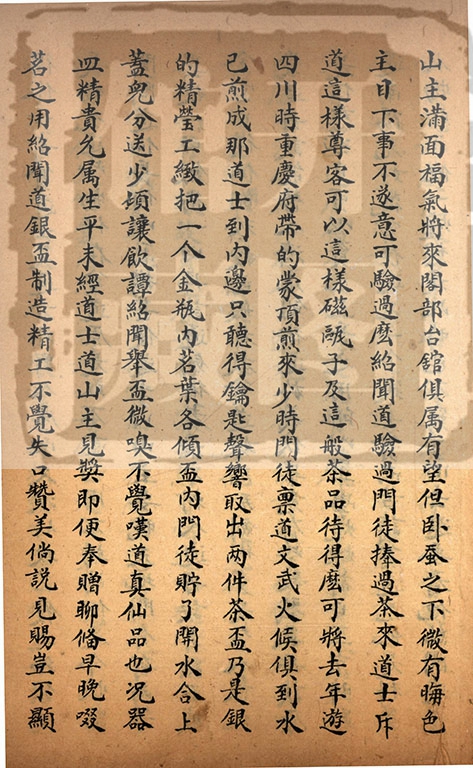 山主滿面福氣將來閣部台舘俱属有望但卧蚕之下微有晦色
主目下事不遂意可驗過麽紹聞道驗過門徒捧過茶來道士斥
道這樣尊客可以這樣磁甌子及這般茶品待得麽可將去年遊
四川時重慶府帶的蒙頂煎來少時門徒禀道文武火候俱到水
已煎成那道士到內邊只聽得鑰匙聲響取出两件茶盃乃是銀
的精瑩工緻把一个金瓶內茗葉各傾盃內門徒貯了開水合上
蓋皃分送少頃讓飲譚紹聞舉盃微嗅不覺嘆道真仙品也况器
皿精貴允属生平未經道士道山主見獎即便奉贈聊俻早晚啜
茗之用紹聞道銀盃制造精工不覺失口贊美倘説見賜豈不顯